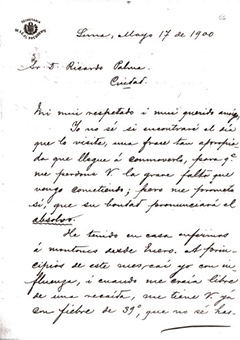 Lima, Mayo 17 de 1900
Sr D. Ricardo Palma.
Ciudad.
Mi mui respetado i mui querido amigo:
Yo no sé si encontraré el dia
que lo visite, una frase tan apropia
da que llegue á conmoverlo, para qe
me perdone V. la grave falta que
vengo cometiendo; pero me prometo
sí, que su bondad pronunciará el
absolvo.
He tenido en casa enfermos
á montones desde Enero. Al prin-
cipios de este mes, caí yo con in-
fluenza, i cuando me creía libre
de una recaida, me tiene V. ya
con fiebre de 39º, que no se has